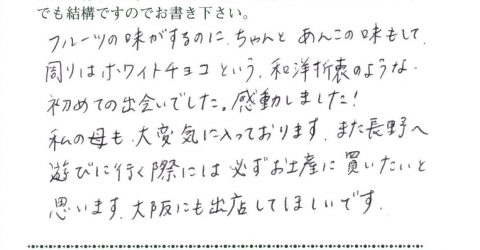 でも結構ですのでお書き下さい。
フルーツの味がするのに、ちゃんと あんこの味もして、
周りはホワイトチョコという、和洋折衷のような、
初めての出会いでした。感動しました!
私の母も、大変気に入っております。また長野へ
遊びに行く際には 必ずお土産に 買いたいと
思います。大阪にも出店してほしいです。